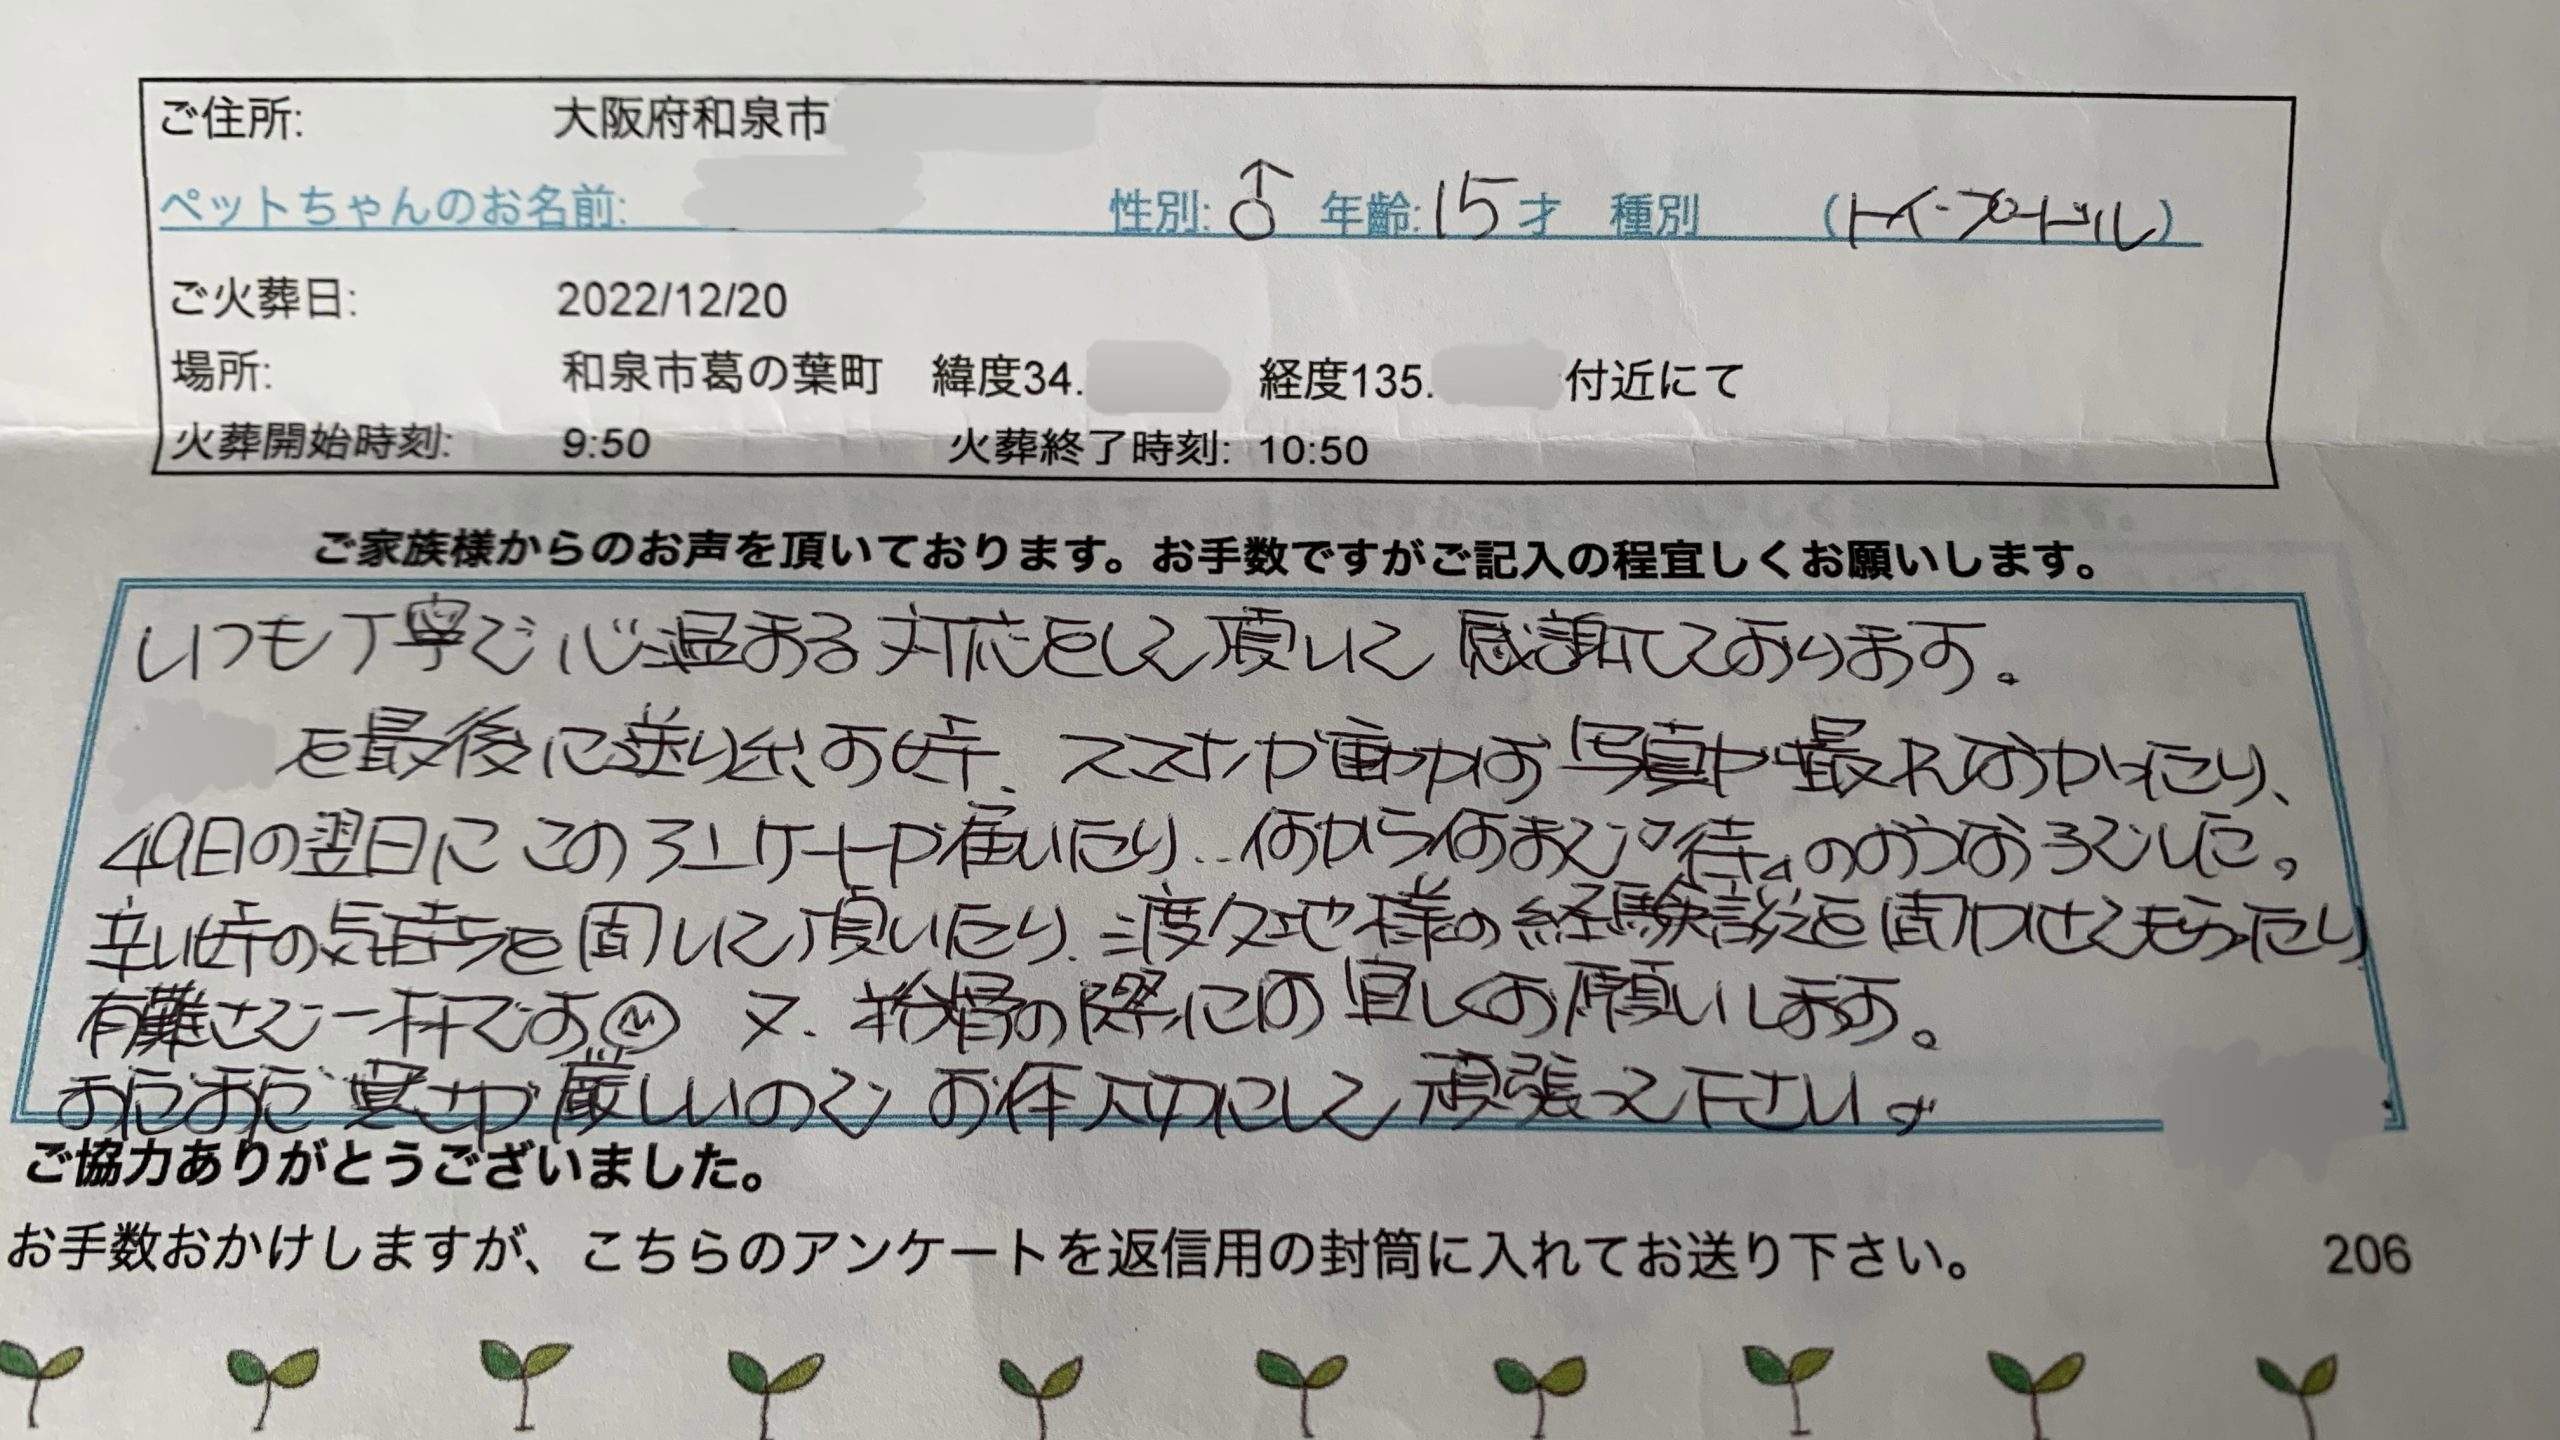 ご住所: 大阪府和泉市
ペットちゃんのお名前: 性別: ♂ 年齢: 15才 種別 (トイ・プードル)
ご火葬日: 2022/12/20
場所: 和泉市葛の葉町 緯度34. 経度135. 付近にて
火葬開始時刻: 9:50 火葬終了時刻: 10:50
ご家族様からのお声を頂いております。お手数ですがご記入の程宜しくお願いします。
いつも丁寧で心温まる対応をして頂いて感謝しております。
を最後に送り出す時、スマホが動かず写真が撮れなかったり、
49日の翌日にこのアンケートが届いたり…何から何まで 待 のような子でした。
辛い時の気持ちを聞いて頂いたり、渡久地様の経験談を聞かせてもらったり
有難さで一杯です 又、粉骨の際には宜しくお願いします。
まだまだ寒さが厳しいので お体大切にして頑張って下さい。
ご協力ありがとうございました。
お手数おかけしますが、こちらのアンケートを返信用の封筒に入れてお送り下さい。 206